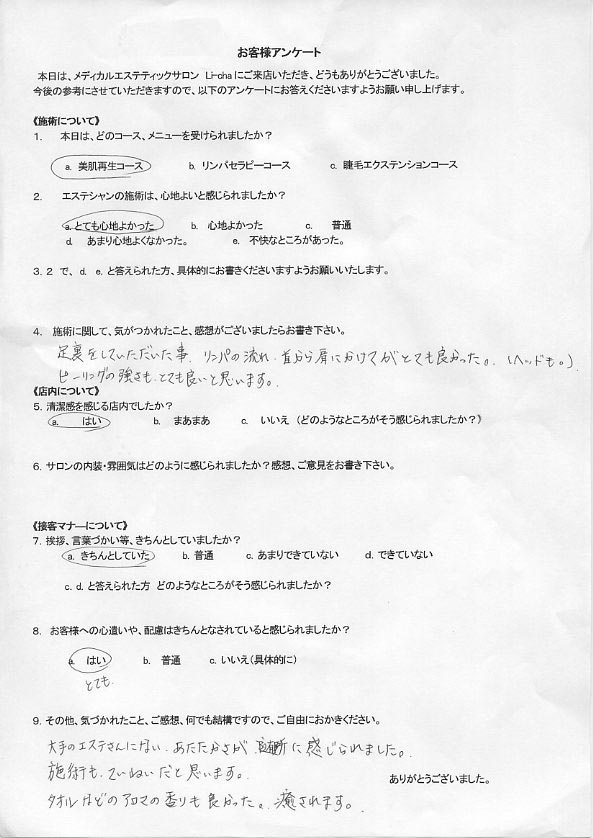 お客様アンケート
本日は、メディカルエステティックサロン Li-chaにご来店いただき、どうもありがとうございました。
今後の参考にさせていただきますので、以下のアンケートにお答えくださいますようお願い申し上げます。
《施術について》
1. 本日は、どのコース、メニューを受けられましたか？
a. 美肌再生コース b. リンパセラピーコース c. 睫毛エクステンションコース
2. エステシャンの施術は、心地よいと感じられましたか？
a. とても心地よかった b. 心地よかった c. 普通
d. あまり心地よくなかった。 e. 不快なところがあった。
3. 2 で、 d. e. と答えられた方、具体的にお書きくださいますようお願いいたします。
4. 施術に関して、気がつかれたこと、感想がございましたらお書き下さい。
足裏をしていただいた事、リンパの流れ、首から肩にかけてがとても良かった。（ヘッドも。）
ピーリングの強さも、とても良いと思います。
《店内について》
5. 清潔感を感じる店内でしたか？
a. はい b. まあまあ c. いいえ （どのようなところがそう感じられましたか？）
6. サロンの内装・雰囲気はどのように感じられましたか？感想、ご意見をお書き下さい。
《接客マナーについて》
7. 挨拶、言葉づかい等、きちんとしていましたか？
a. きちんとしていた b. 普通 c. あまりできていない d. できていない
c. d. と答えられた方 どのようなところがそう感じられましたか？
8. お客様への心遣いや、配慮はきちんとなされていると感じられましたか？
a. はい b. 普通 c. いいえ（具体的に）
とても
9. その他、気づかれたこと、ご感想、何でも結構ですので、ご自由におかきください。
大手のエステさんにはない、あたたかさが に感じられました。
施術も、ていねいだと思います。
ありがとうございました。
タオルなどのアロマの香りも良かった。癒されます。